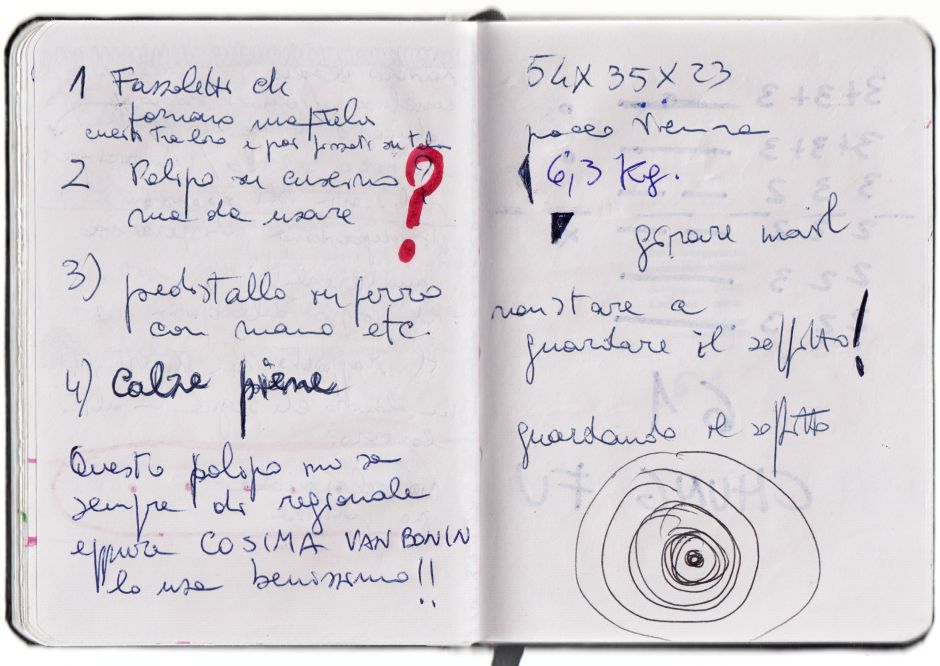 1 Fazzoletti che
formano mantelu
cuciti tra loro e poi fissati su tela
2 Polipo su cuscino ?
ma da usare
3) piedistallo in ferro
con mano etc.
4) Calze piene
Questo polipo mi sa
sempre di regionale
eppure COSIMA VAN BONIN
lo usa benissimo!!
54x35x23
pacco Vienna
6,3 Kg.
mail
non stare a
guardare il soffitto!
guardando il soffitto
3+3+3
3+3
3 3 2
61
CHUNG FU